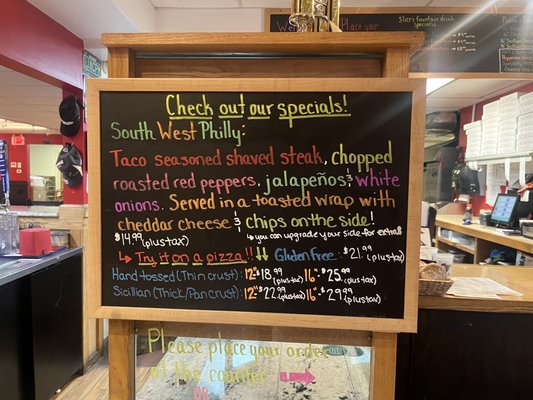 Check out our specials!
South West Philly:
Taco seasoned shaved steak, chopped
roasted red peppers, jalapeños & white
onions. Served in a toasted wrap with
cheddar cheese & chips on the side!
$14.99 (plus tax) ↳ you can upgrade your side for extra!!
↳ Try it on a pizza!! ↓↓ Gluten free: $21.99 (plus tax)
Hand tossed (Thin crust): 12" $18.99 (plus tax) 16" $25.99 (plus tax)
Sicilian (Thick/Pan crust): 12" $22.99 (plus tax) 16" $29.99 (plus tax)
Please place your order
at the counter →